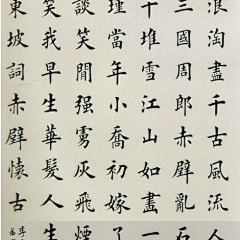 浪淘盡千古風流人
三國周郎赤壁亂石
千堆雪江山如畫一
瑾當年小喬初嫁了
談笑閒强虜灰飛煙
笑我早生華髮人生
東坡詞赤壁懷古